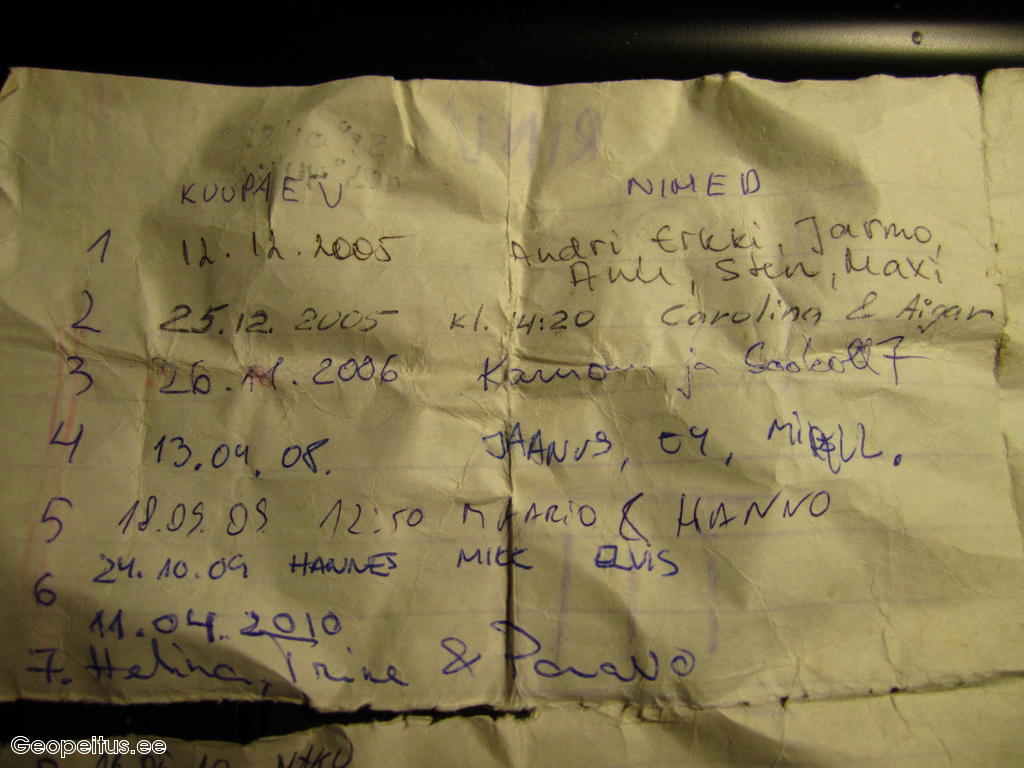 KUUPÄEV NIMED
1 12.12.2005 Andri Erkki, Jarmo,
Sten, Maxi
2 25.12.2005 kl. 14:20 Carolina & Aigar
3 26.11.2006 ja
4 13.04.08. JAANUS,
5 18.09.09 12:50 MAARIO & HANNO
24.10.09 HANNES MIKK
6
11.04.2010
7. Helina, Triine &
Geopeitus.ee